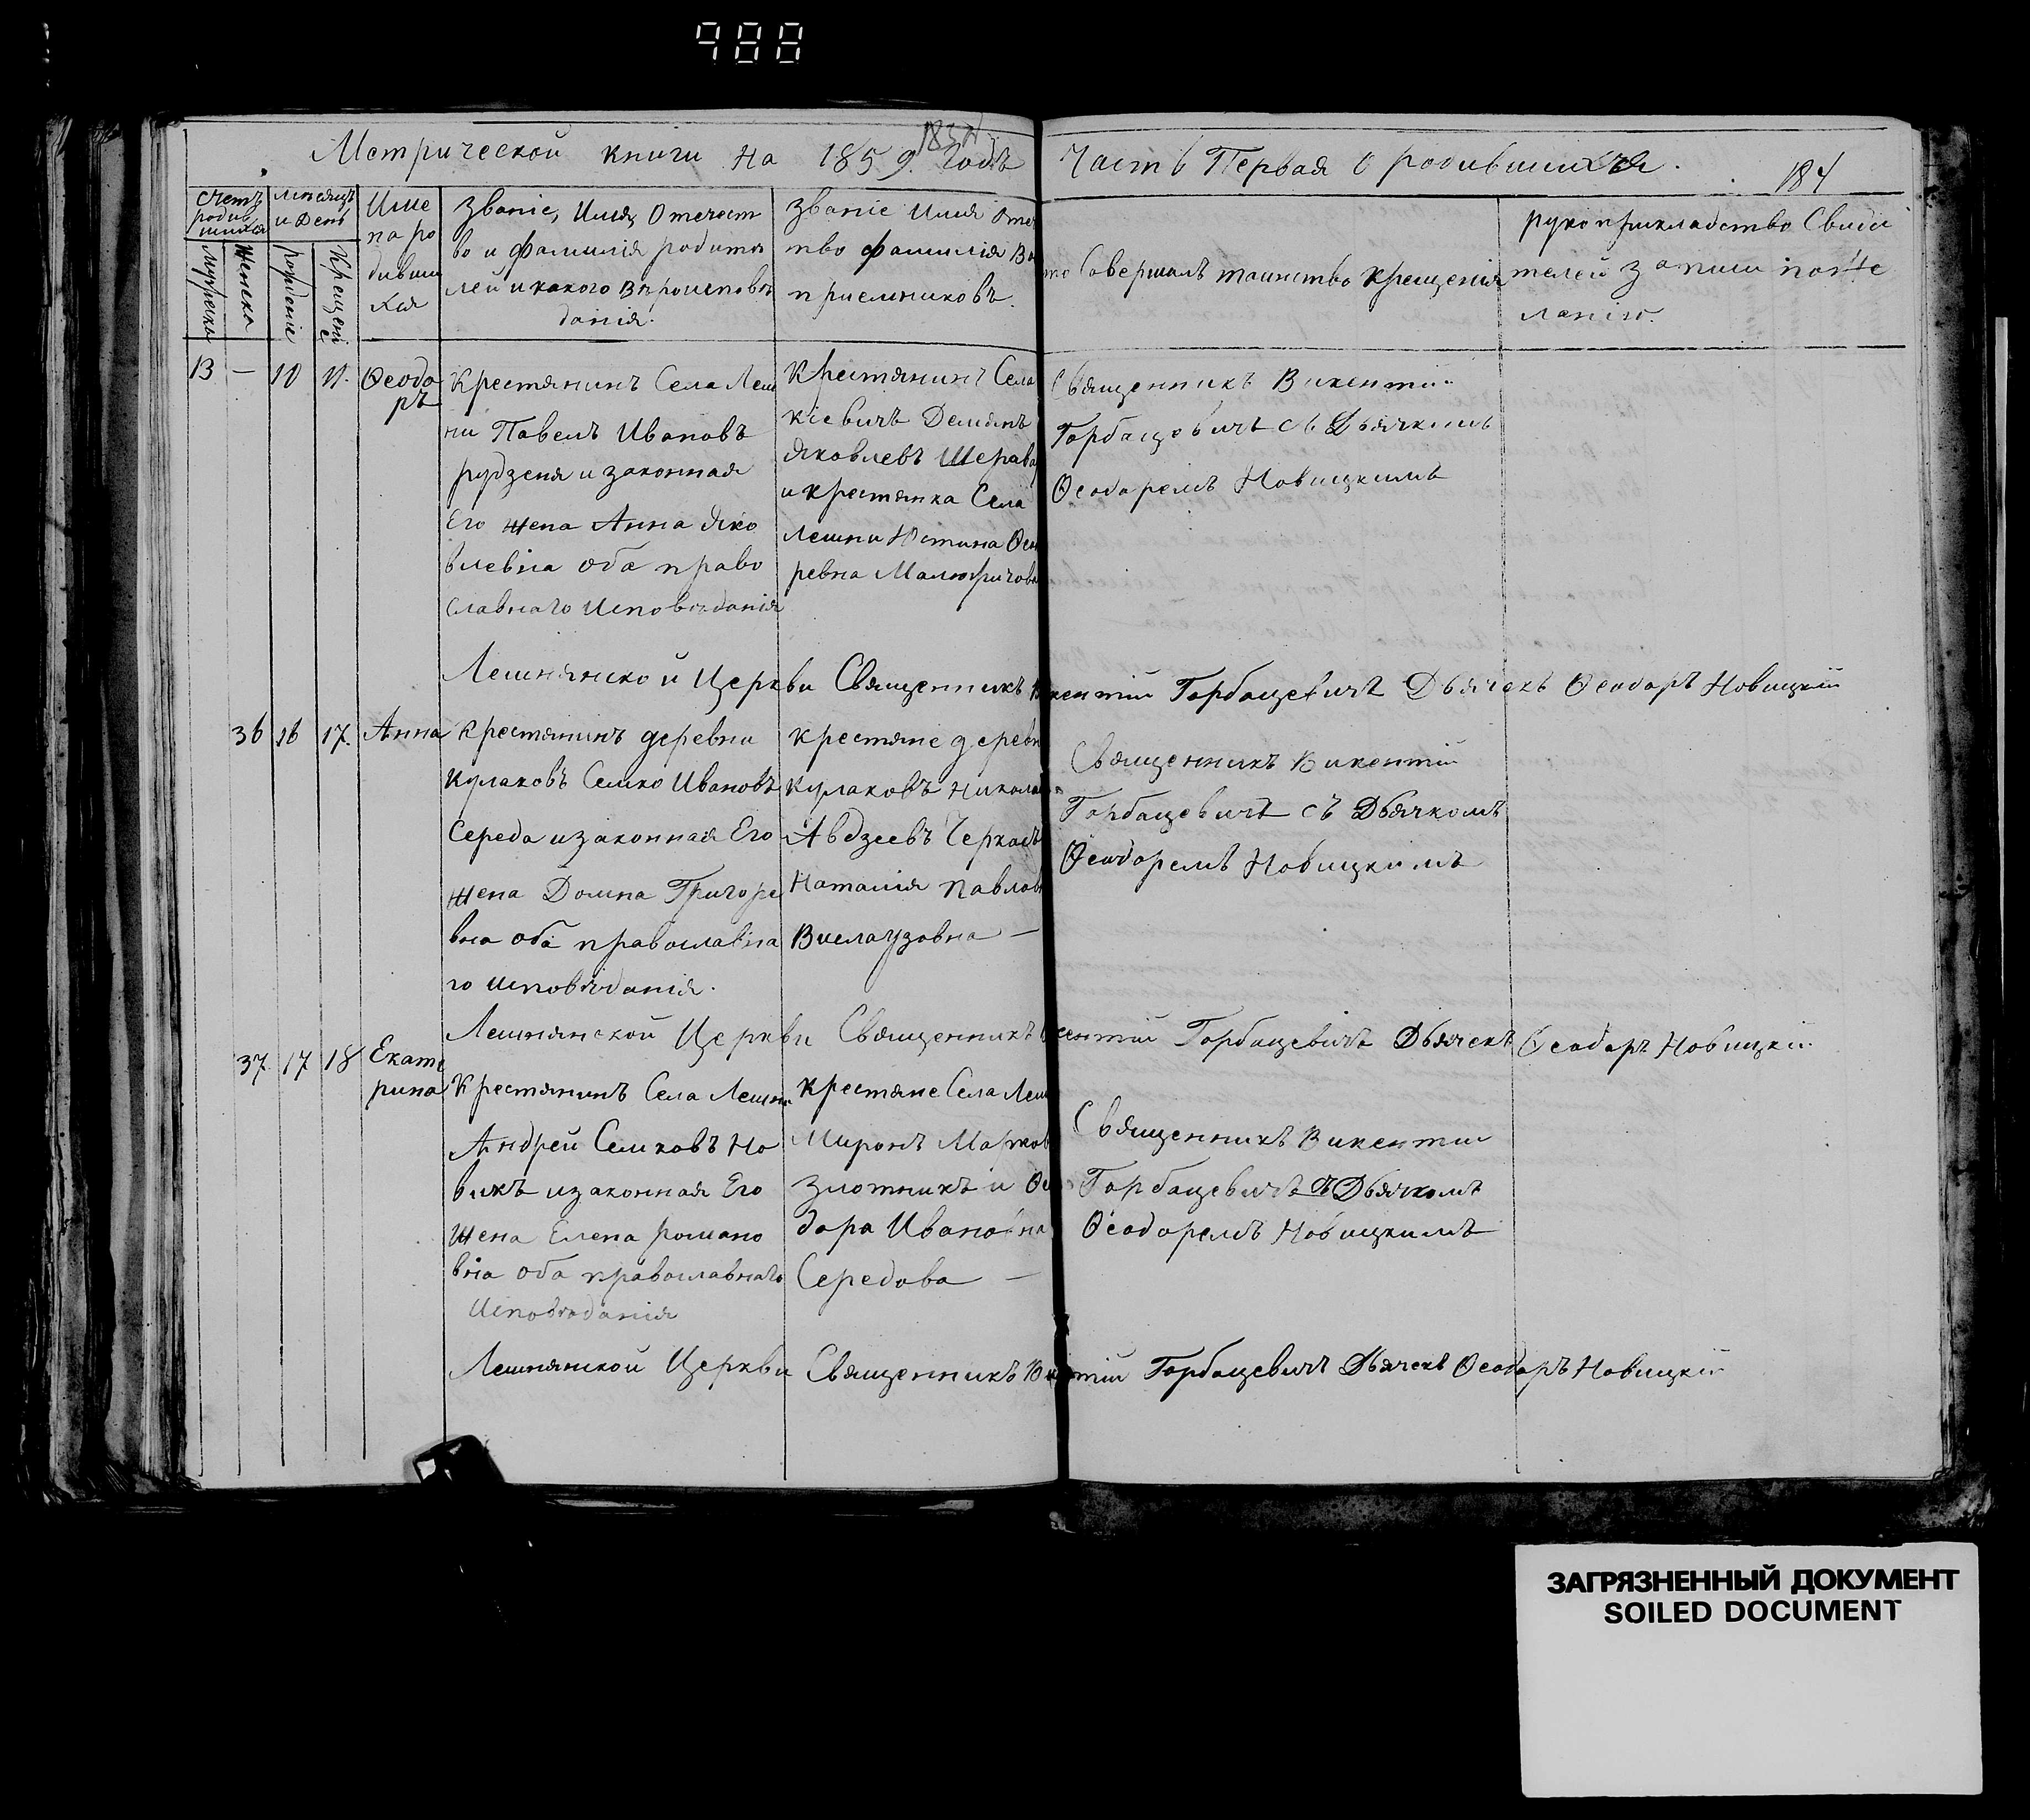 988
Метрической книги на 1859. Годъ Часть Первая о родившихся.
184
Счетъ родившихся
мѣсяцъ и День
Мужеска
Женска
рожденіе
Крещеніе
Име
на ро
дивши
хся
Званіе, Имя, Отечест
во и фамилія родите
лей и какого Вѣроисповѣ
данія.
Званіе Имя Отеч
тво фамилія Во
приемниковъ.
то Совершалъ таинство Крещенія
рукоприкладство Свиде
телей записи по Же
ланію.
13 — 10 11. Ѳеодо
ръ
Крестянинъ Села Леш
ни Павелъ Ивановъ
рудзеня и законная
Его жена Анна Яко
влевна оба право
славнаго Исповѣданія
Крестянинъ Села
Кіевичъ Демянъ
Яковлевъ
и крестянка Села
Лешни Юстина
ревна
Священникъ Викентій
Горбацевичъ съ Дьячкомъ
Ѳеодоремъ Новицкимъ
Лешнянской Церкви Священникъ Викентій Горбацевичъ Дьячекъ Ѳеодоръ Новицкій
36 16 17. Анна
Крестянинъ деревни
Кулаковъ Семко Ивановъ
Середа и законная Его
жена Домна Григоре
вна оба православна
го исповѣданія.
крестяне деревн
Кулаковъ Никола
Авдзеевъ
Наталія Павлов
Вислаузовна —
Священникъ Викентій
Горбацевичъ съ Дьячкомъ
Ѳеодоремъ Новицкимъ
Лешнянской Церкви Священникъ Викентій Горбацевичъ Дьячекъ Ѳеодоръ Новицкій
37. 17 18 Екате
рина
Крестянинъ Села Лешни
Андрей Семковъ Но
викъ и законная Его
жена Елена романо
вна оба православнаго
Исповѣданія
Крестяне Села Леш
Миронъ Марков
Злотникъ и Ѳео
дора Ивановна
Середова —
Священникъ Викентій
Горбацевичъ съ Дьячкомъ
Ѳеодоремъ Новицкимъ
Лешнянской Церкви Священникъ Викентій Горбацевичъ Дьячекъ Ѳеодоръ Новицкій
ЗАГРЯЗНЕННЫЙ ДОКУМЕНТ
SOILED DOCUMENT